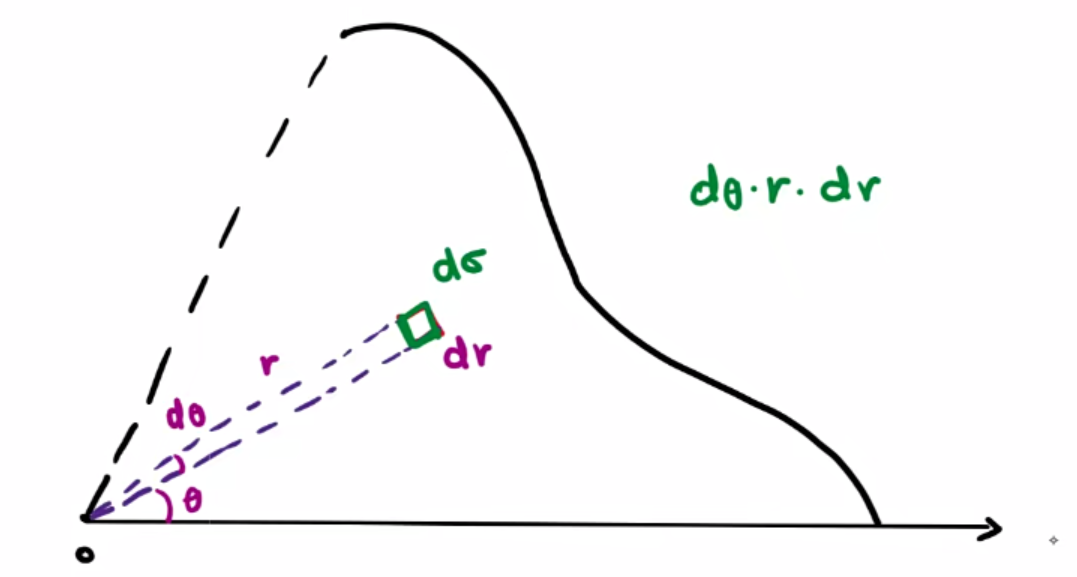 dθ·r·dr
dσ
dr
r
dθ
θ
o